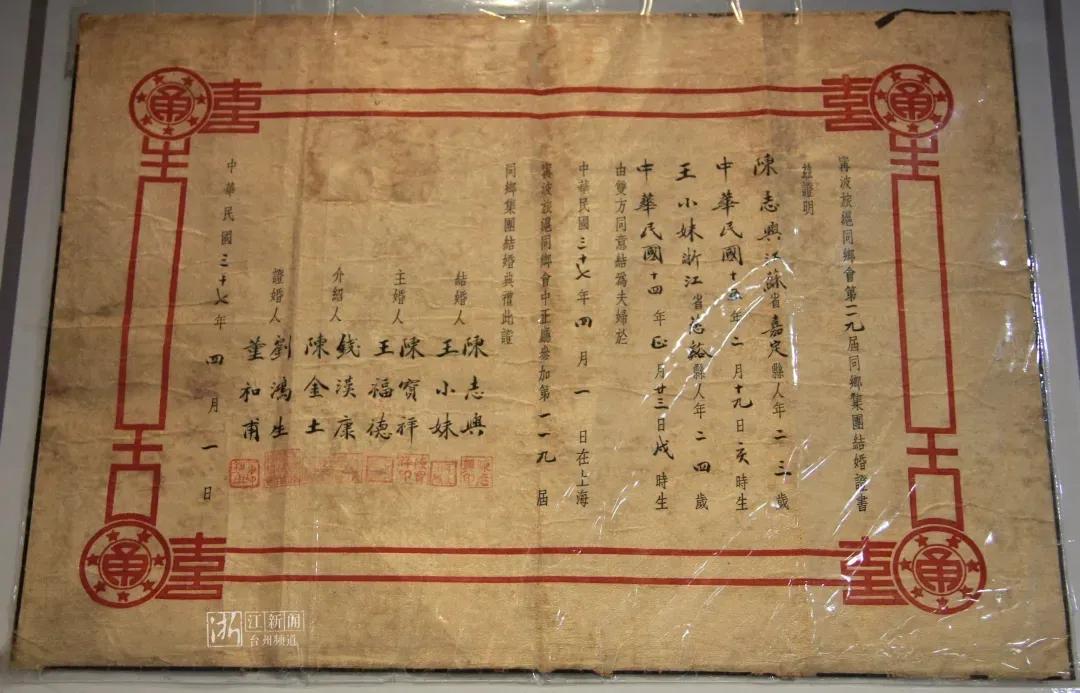 甯波旅滬同鄉會第一一九屆同鄉集團結婚證書
玆證明
陳志興江蘇省嘉定縣人年二三歲
中華民國十五年二月十九日亥時生
王小妹浙江省慈谿縣人年二四歲
中華民國十四年正月廿三日戌時生
由雙方同意結爲夫婦於
中華民國三十七年四月一日在上海
甯波旅滬同鄉會中正廳參加第一一九屆
同鄉集團結婚典禮此證
結婚人 陳志興 王小妹
主婚人 陳寶祥 王福德
介紹人 錢漢康 陳金土
證婚人 劉鴻生 董和甫
中華民國三十七年四月一日
甬
甬
甬
甬
浙江新闻
台州频道